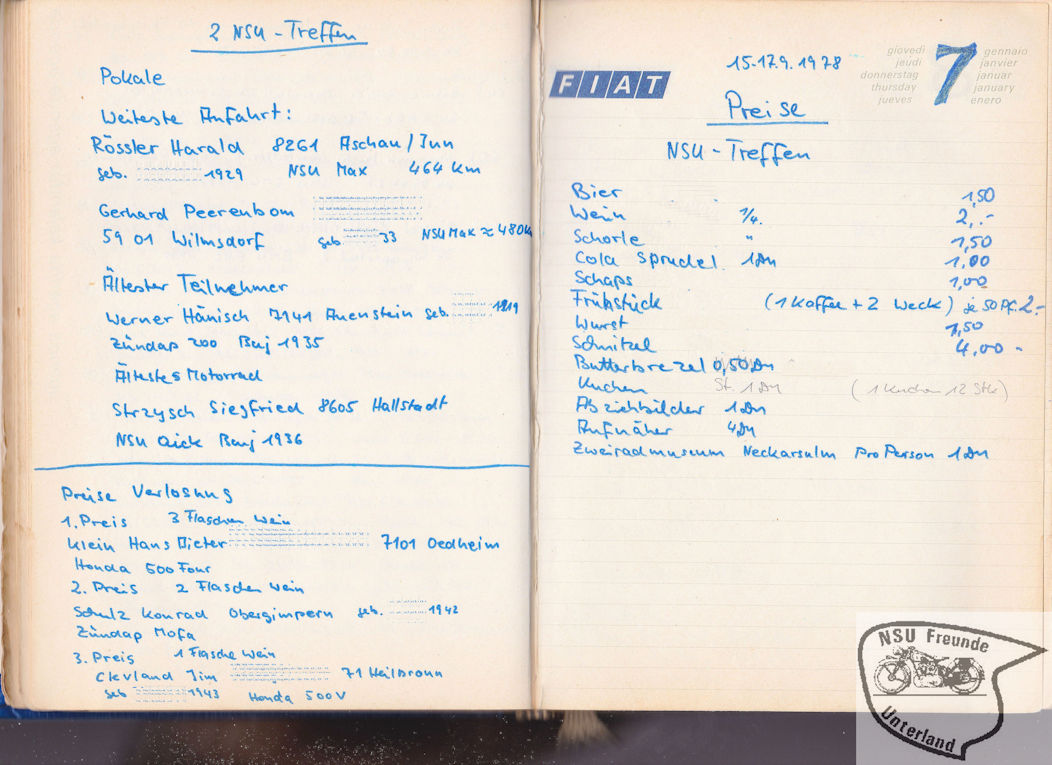 2 NSU - Treffen
Pokale
Weiteste Anfahrt:
Rössler Harald 8261 Aschau/Inn
geb. 1929 NSU Max 464 km
Gerhard Peerenbom
59 01 Wilmsdorf geb 33 NSU Max ≈ 480km
Ältester Teilnehmer
Werner Hänisch 7141 Auenstein geb. 1919
Zündap 200 Bauj 1935
Ältestes Motorrad
Strzysch Siegfried 8605 Hallstadt
NSU Qick Bauj 1936
Preise Verlosung
1. Preis 3 Flaschen Wein
Klein Hans Dieter 7101 Oedheim
Honda 500 Four
2. Preis 2 Flaschen Wein
Schulz Konrad Obergimpern geb. 1942
Zündap Mofa
3. Preis 1 Flasche Wein
Clevland Jim 71 Heilbronn
geb 1943 Honda 500 V
FIAT
15.-17.9.1978
giovedì
jeudi
donnerstag
thursday
jueves
7
gennaio
janvier
januar
january
enero
Preise
NSU - Treffen
Bier 1,50
Wein 1/4. 2,.-
Schorle " 1,50
Cola Sprudel 1DM 1,00
Schaps 1,00
Frühstück (1 Koffee + 2 Weck) je 50 Pf. 2.-
Wurst 1,50
Schnitzel 4,00 -
Butterbrezel 0,50 DM
Kuchen St. 1 DM (1 Kuchen 12 Stk)
Abziehbilder 1DM
Aufnäher 4DM
Zweiradmuseum Neckarsulm Pro Person 1 DM
NSU Freunde
Unterland